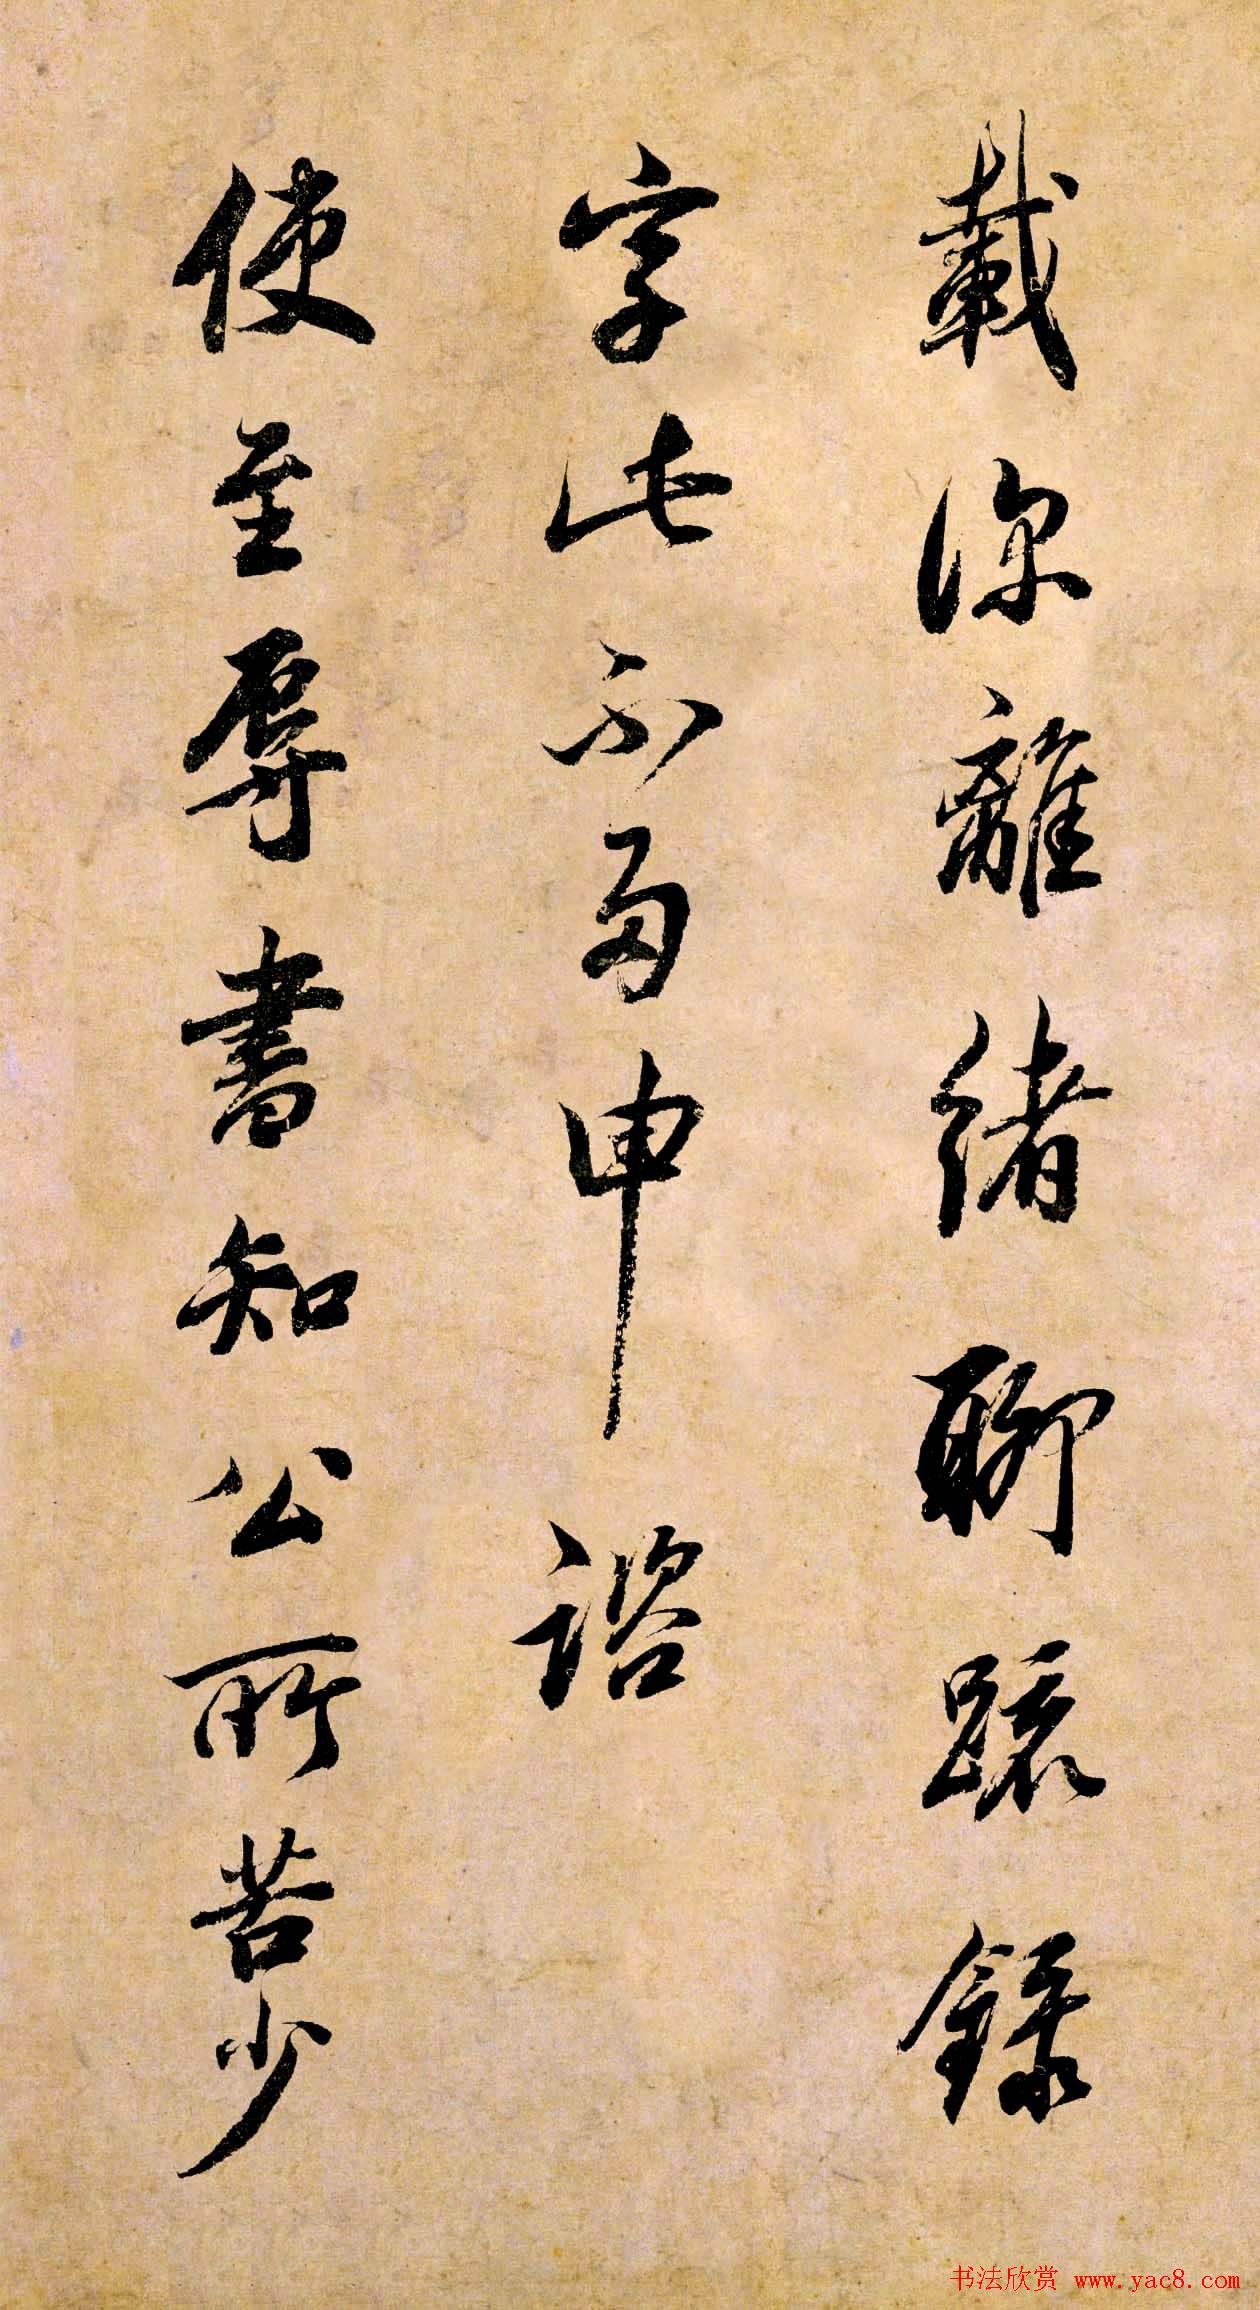 載深離緒聊疏錄
字此不多申諮
使至辱書知公所苦少
书法欣赏 www.yac8.com